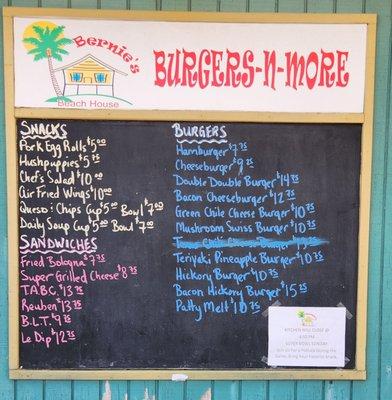 Bernie's
Beach House
BURGERS-N-MORE
SNACKS
Pork Egg Rolls $5.00
Hushpuppies $5.75
Chef's Salad $10.00
Air Fried Wings $10.00
Queso & Chips Cup $5.00 Bowl $7.00
Daily Soup Cup $5.00 Bowl $7.00
SANDWICHES
Fried Bologna $7.75
Super Grilled Cheese $8.75
T.A.B.C. $13.75
Reuben $13.75
B.L.T. $9.75
Le Dip $12.75
BURGERS
Hamburger $7.75
Cheeseburger $8.75
Double Double Burger $14.75
Bacon Cheeseburger $12.75
Green Chile Cheese Burger $10.75
Mushroom Swiss Burger $10.75
Teriyaki Pineapple Burger $10.75
Hickory Burger $10.75
Bacon Hickory Burger $15.25
Patty Melt $10.75
KITCHEN WILL CLOSE @
4:00 PM
SUPER BOWL SUNDAY
Join Us For a Potluck During the
Game, Bring Your Favorite Snack.